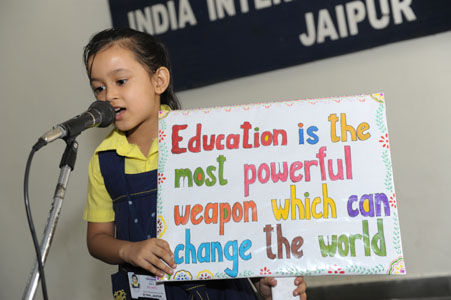 INDIA INTER
JAIPUR
Education is the
most powerful
weapon which can
change the world